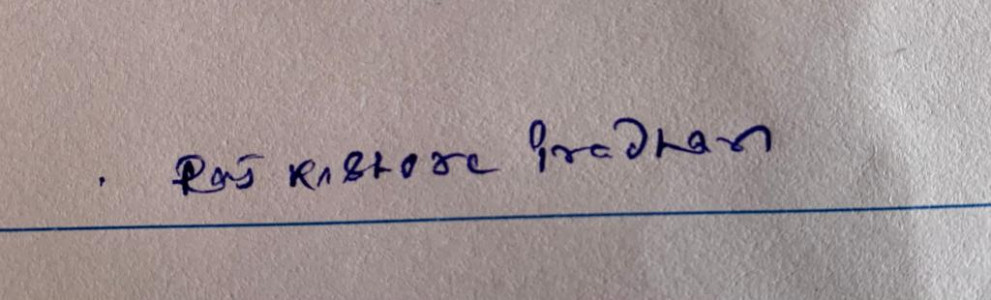 Raj Kishore Pradhan